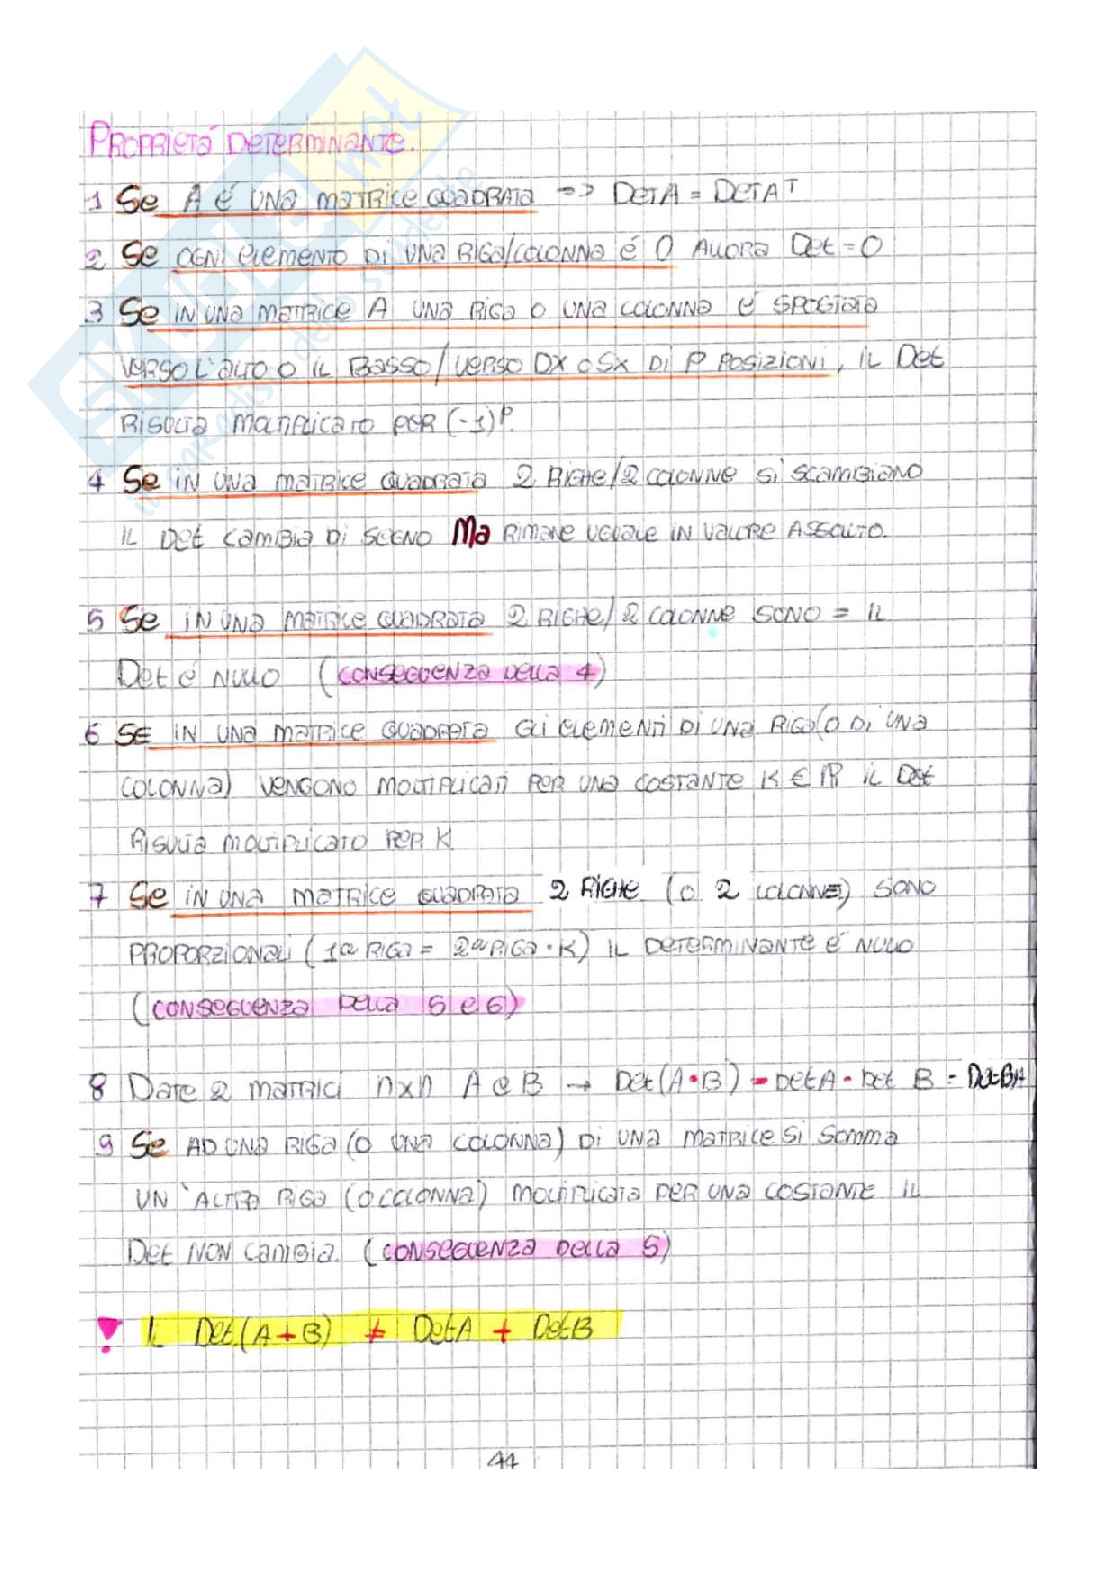 PROPRIETÁ DETERMINANTE.
1 Se A É UNA MATRICE QUADRATA => DETA = DETA^T
2 Se OGNI ELEMENTO DI UNA RIGA/COLONNA É 0 ALLORA Det = 0
3 Se IN UNA MATRICE A UNA RIGA O UNA COLONNA É SPOSTATA
VERSO L'ALTO O IL BASSO/VERSO DX O SX DI P POSIZIONI, IL Det
RISULTA MOLTIPLICATO PER (-1)^P.
4 Se IN UNA MATRICE QUADRATA 2 RIGHE/2 COLONNE SI SCAMBIANO
IL Det CAMBIA DI SEGNO Ma RIMANE UGUALE IN VALORE ASSOLUTO.
5 Se IN UNA MATRICE QUADRATA 2 RIGHE/2 COLONNE SONO = IL
Det é NULLO (CONSEGUENZA DELLA 4)
6 SE IN UNA MATRICE QUADRATA GLI ELEMENTI DI UNA RIGA (O DI UNA
COLONNA) VENGONO MOLTIPLICATI PER UNA COSTANTE K ∈ ℝ IL Det
RISULTA MOLTIPLICATO PER K
7 Se IN UNA MATRICE QUADRATA 2 RIGHE (O 2 COLONNE) SONO
PROPORZIONALI (1ª RIGA = 2ª RIGA · K) IL DETERMINANTE É NULLO
(CONSEGUENZA DELLA 5 e 6)
8 Date 2 MATRICI nxn A e B → Det(A·B) = DetA · Det B = DetBA
9 Se AD UNA RIGA (O UNA COLONNA) DI UNA MATRICE SI SOMMA
UN'ALTRA RIGA (O COLONNA) MOLTIPLICATA PER UNA COSTANTE IL
Det NON CAMBIA. (CONSEGUENZA DELLA 5)
! IL Det(A+B) ≠ DetA + DetB
44
SKUOLA.net